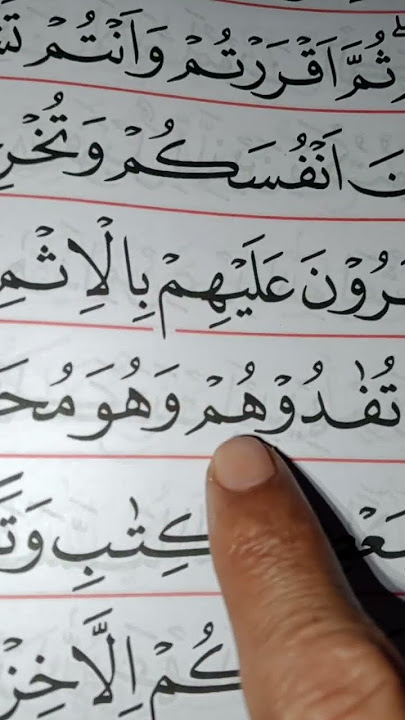 ثُمَّ اَقْرَرْتُمْ وَاَنْتُمْ تَش
نَ اَنْفُسَكُمْ وَتُخْرِ
هَرُوْنَ عَلَيْهِمْ بِالْاِثْمِ
تُفٰدُوْهُمْ وَهُوَ مُحَ
بَعْ كِتٰبِ وَتَ
كُمْ اِلَّا خِزْ